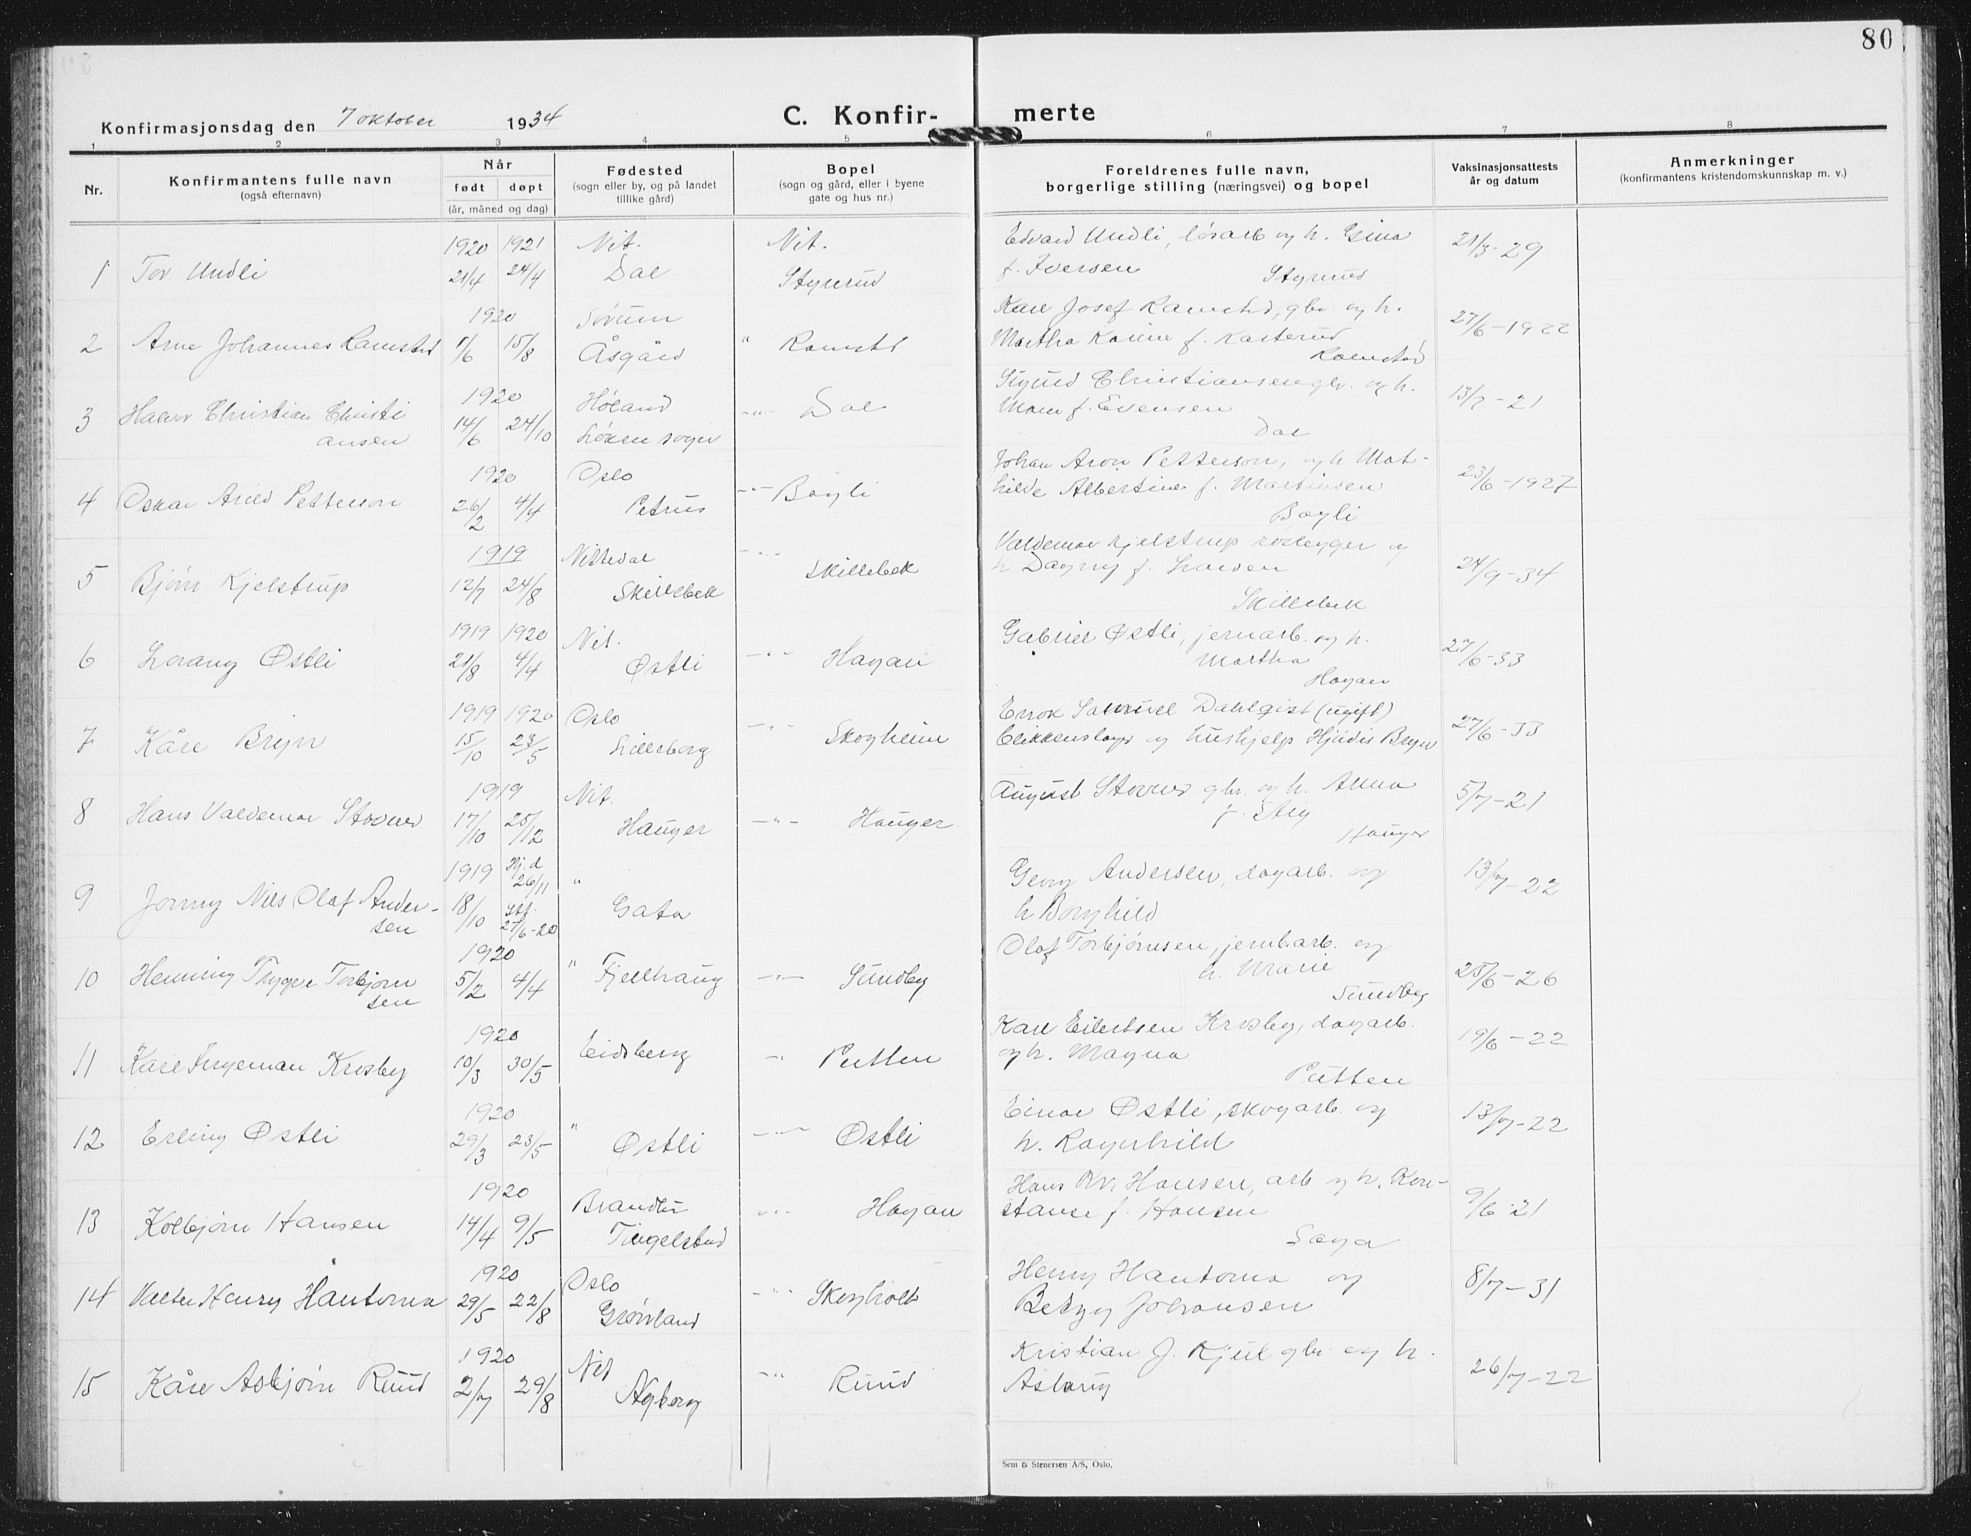 80
Konfirmasjonsdag den 7 oktober 1934
C. Konfir- merte
1 2 3 4 5 6 7 8
Nr.
Konfirmantens fulle navn
(også efternavn)
Når
født døpt
(år, måned og dag)
Fødested
(sogn eller by, og på landet
tillike gård)
Bopel
(sogn og gård, eller i byene
gate og hus nr.)
Foreldrenes fulle navn,
borgerlige stilling (næringsvei) og bopel
Vaksinasjonsattests
år og datum
Anmerkninger
(konfirmantens kristendomskunnskap m. v.)
1920 1921 Nit. Nit. Edvard Undli, løsarb og h. Gina 21/3-29
1 Tor Undli 21/4 24/4 Dal Styrerud f. Iversen Styrerud
1920 Sørum Kare Josef Ramstad, gbr. og h. 27/6-1922
2 Arne Johannes Ramstad 1/6 15/8 Åsgård " Ramstd Martha Karine f.
Ramstad
1920 Høland Sigurd Christiansen gbr. og h. 13/7-21
3 Christian Christi 14/6 24/10 Løken sogn -"- Dal f. Evensen
ansen Dal
1920 Oslo Johan Aron Petterson, og h Mat- 23/6-1927
4 Oskar Arild Petterson 26/2 4/4 Petrus -"- Bøyli hilde Albertine f. Martinsen
Bøyli
1919 Nittedal -"- Valdemar Kjelstrup og
5 Bjørn Kjelstrup 12/7 24/8 Skillebek Skillebek h Dagny f. Larsen 24/9-34
Skillebek
1919 1920 Nit. Gabriel Østli, jernarb. og h.
6 Lorang Østli 21/8 4/4 Østli -"- Hagan Martha 27/6-33
Hagan
1919 1920 Oslo Samuel Dahlqist (ugift)
7 Kåre Bryn 15/10 23/5 Lilleborg -"- Skogheim Blikkenslager og hushjelp Hjørdis Bryn 27/6-33
1919 Nit. August Stovner gbr. og h. Anna 5/7-21
8 Hans Valdemar Stovner 17/10 25/12 Hauger -"- Hauger f. Stig
Hauger
1919 Hj.d 26/11 " Georg Andersen, dagarb. og 13/7-22
9 Jonny Nils Olaf Ander- 18/10 stf. 27/6-20 Gata h Borghild
sen
1920 Olaf Torbjørnsen, jernbarb. og
10 Henning Trygve Torbjørn 5/2 4/4 " Fjellhaug -"- Sundby h. Marie 25/6-26
sen Sundby
1920 Eidsberg Kare Eilertsen Krosby, dagarb.
11 Kare Ingeman Krosby 10/3 30/5 -"- Putten og h. Magna 19/6-22
Putten
1920 Einar Østli, skogarb. og 13/7-22
12 Erling Østli 29/3 23/5 " Østli -"- Østli h. Ragnhild
1920 Brandbu Hans Hansen, arb og h. Kon-
13 Kolbjørn Hansen 14/4 9/5 Tingelstad -"- Hagan stanse f. Hansen 9/6-21
Saga
1920 Oslo Henry Hantorma og 8/7-31
14 Valter Henry Hantorma 29/5 22/8 Grønland -"- Skogholt Betzy Johansen
1920 Nit Kristian J. Kjul gbr og h. 26/7-22
15 Kåre Asbjørn Ruud 2/7 29/8 Nyborg -"- Ruud Aslaug
Sem & Stenersen A/S, Oslo.